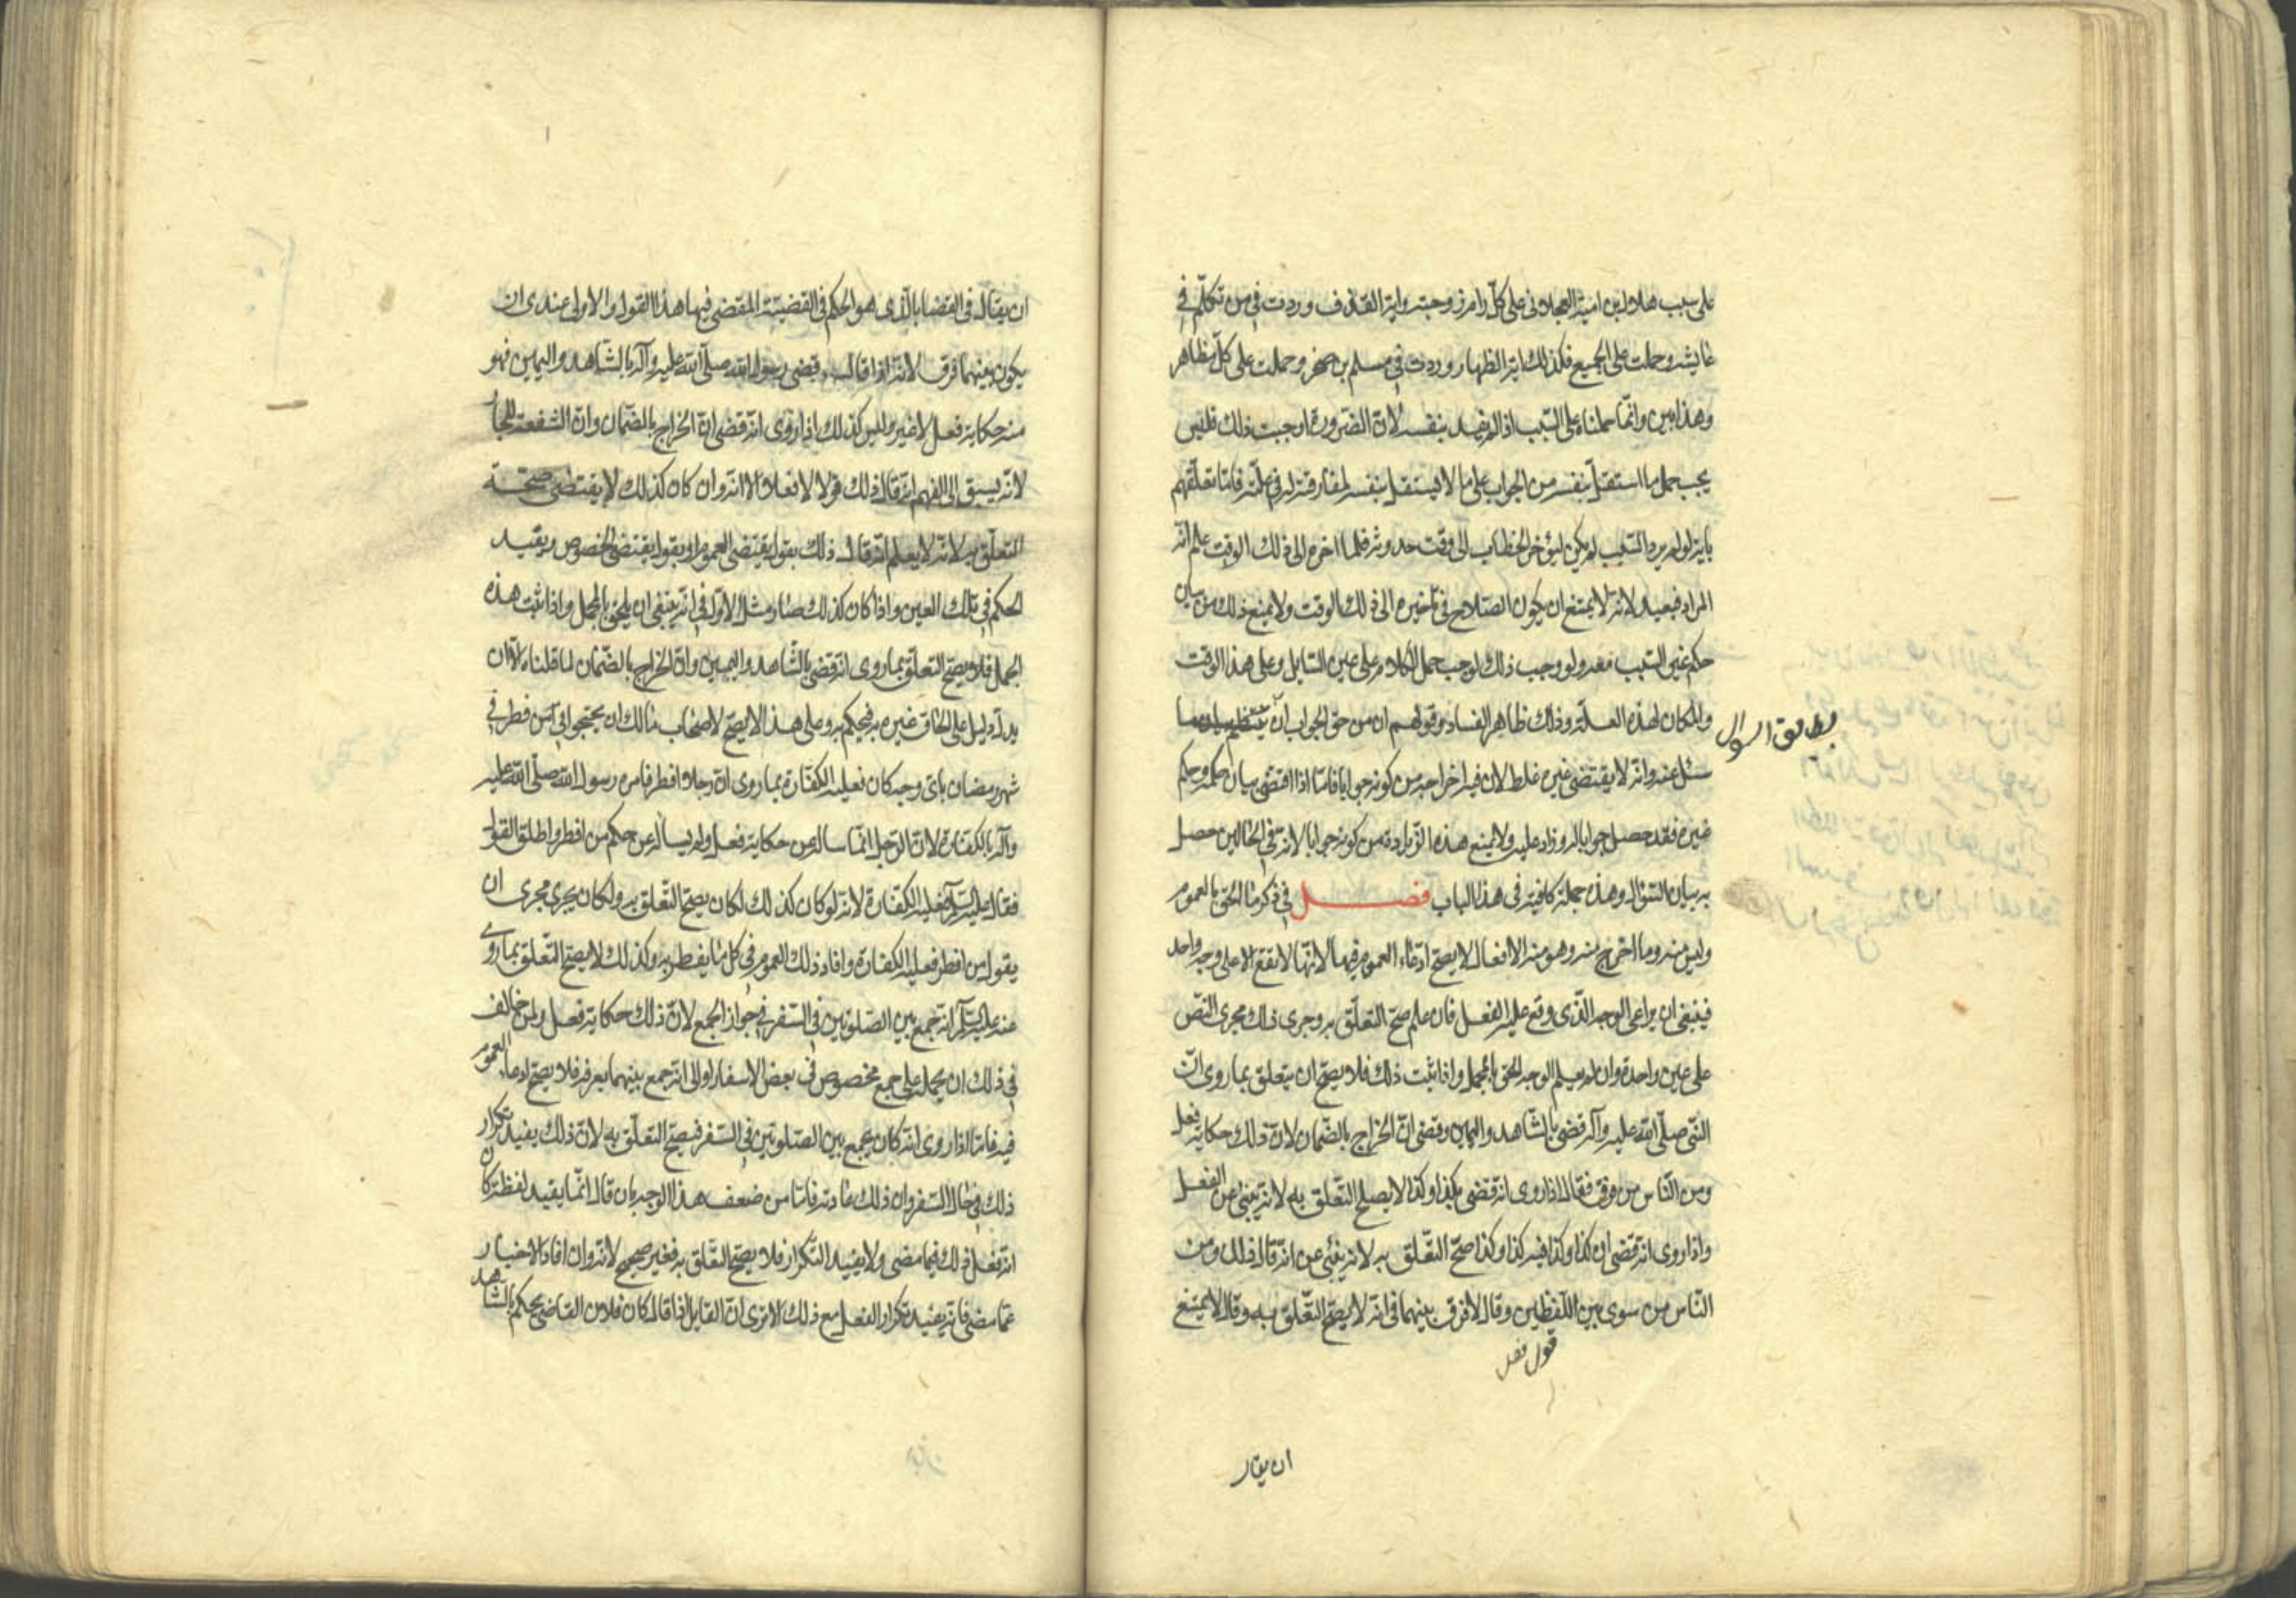 على سبب هلال بن امية العجلانى على كلّ رامر زوجته واية القذف وردت فى من تكلّم فى
عايشه وحملت على الجميع فكذلك اية الظهار وردت فى مسلم بن صخر وحملت على كلّ مظاهر
وهذا بين وانّما حملناه على السّبب اذا لم يفد بنفسه لانّ الضّرورة اوجبت ذلك فليس
يجب حمل ما استقلّ بنفسه من الجواب على ما لا يستقل بنفسه لمفارقته له فى علّته فامّا تعلّقهم
بانه لو لم يرد السّبب لم يكن ليؤخر الخطاب الى وقت حدوثه فلما اخره الى ذلك الوقت علم انّه
المراد فبعيد لانّه لا يمتنع ان يكون الصّلاح فى تاخيره الى ذلك الوقت ولا يمنع ذلك من بيان
حكم غير السّبب معه ولو وجب ذلك لوجب حمل الكلام على عين السّايل وعلى هذا الوقت
والمكان لهذه العلّة وذلك ظاهر الفساد وقولهم ان من حق الجواب ان ينتظم بيان ما
بطابق السوال
سئل عنه وانّه لا يقتضى غيره غلط لان فيه اخراجه من كونه جوابا فامّا اذا اقتضى بيان حكمه وحكم
غيره فقد حصل جوابا له وزاد عليه ولا يمنع هذه الزّيادة من كونه جوابا لانّه فى الحالين حصل
به بيان السّؤال وهذه جملة كافية فى هذا الباب فصل فى ذكر ما الحق بالعموم
وليس منه وما اخرج منه وهو منه الافعال لا يصحّ ادّعاء العموم فيها لانّها لا تقع الا على وجه واحد
فينبغى ان يراعى الوجه الّذى وقع عليه الفعل فان علم صحّ التعلّق به وجرى ذلك مجرى النّص
على عين واحدة وان لم يعلم الوجه الحق بالمجمل واذا ثبت ذلك فلا يصحّ ان يتعلق بما روى انّ
النّبى صلّى الله عليه وآله قضى بالشّاهد واليمين وقضى انّ الخراج بالضّمان لانّ ذلك حكاية فعل
ومن النّاس من فرق فقال اذا روى انّه قضى بكذا وكذا لا يصلح التّعلق به لانّه ينبئ عن الفعل
واذا روى انّه قضى ان كذا وكذا فيه كذا وكذا صحّ التعّلق به لانه ينبئ عن انّه قال ذلك ومن
النّاس من سوى بين اللّفظين وقال لا فرق بينهما فى انّه لا يصحّ التّعّلق به وقال لا يمتنع
ان يقال
ان يقال فى القضايا بالّذى هو الحكم فى القضيّة المقضى فيها هذا القول والاولى عندى ان
يكون بينهما فرق لانّه اذا قال قضى رسول الله صلّى الله عليه وآله بالشّاهد واليمين فهو
منه حكاية فعل لا غير وليس كذلك اذا روى انّه قضى انّ الخراج بالضّمان وانّ الشفعة للجار
لانّه يسبق الى الفهم انّه قال ذلك قولا لا فعلا الا انّه وان كان كذلك لا يقتضى صحّة
التعلّق به لانّه لا يعلم انّه قال ذلك بقول يقتضى العموم او بقول يقتضى الخصوص ويفيد
الحكم فى تلك العين واذا كان كذلك صار مثل الاوّل فى انّه ينبغى ان يلحق بالمجمل واذا ثبت هذه
الجمل فلا يصحّ التعلّق بما روى انّه قضى بالشّاهد واليمين وانّ الخراج بالضّمان لما قلناه الّا ان
يدلّ دليل على الحاق غيره به فيحكم به وعلى هذا لا يصحّ لاصحاب مالك ان يحتجوا فى انّ من فطر فى
شهر رمضان باى وجه كان فعليه الكفّارة بما روى انّ رجلا افطر فامره رسول الله صلّى الله عليه
وآله بالكفّارة لانّ الرّجل انّما ساله عن حكاية فعل ولم يساله عن حكم من افطر واطلق القول
فقال عليه السّلم فعليه الكفّارة لانّه لو كان كذلك لكان يصحّ التّعلق به ولكان يجرى مجرى ان
يقول من افطر فعليه الكفّارة وافاد ذلك العموم فى كل ما يفطر به وكذلك لا يصحّ التّعلّق بما روى
عنه عليه السّلم انّه جمع بين الصّلوتين فى السّفر فى جواز الجمع لانّ ذلك حكاية فعل ولمن خالف
فى ذلك ان يحمله على جمع مخصوص فى بعض الاسفار او الى انّه جمع بينهما بعرفة فلا يصحّ ادعاء العموم
فيه فامّا اذا روى انّه كان يجمع بين الصّلوتين فى السّفر فيصحّ التعلّق به لانّ ذلك يفيد تكرار
ذلك فى حال السّفر وان ذلك عادته فامّا من ضعف هذا الوجه بان قال انّما يفيد لفظة كان
انّه فعل ذلك فيما مضى ولا يفيد التّكرار فلا يصحّ التّعلق به فغير صحيح لانّه وان افاد الاخبار
عمّا مضى فانّه يفيد تكرار الفعل مع ذلك الا ترى انّ القايل اذا قال كان فلان القاضى يحكم بالشّاهد